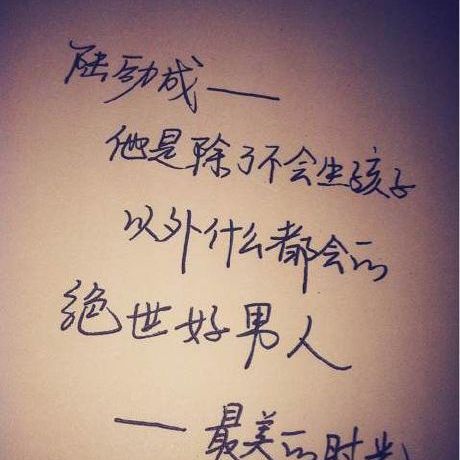 陆劲成——
他是除了不会生孩子
以外什么都会的
绝世好男人
——最美的时光